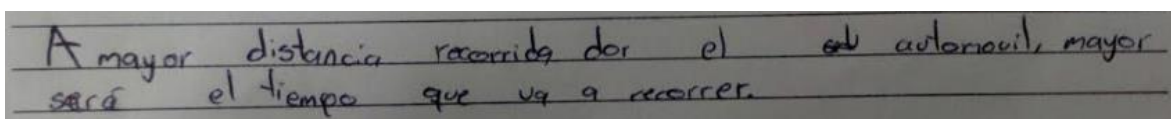 A mayor distancia recorrida dor el automovil, mayor
será el tiempo que va a recorrer.